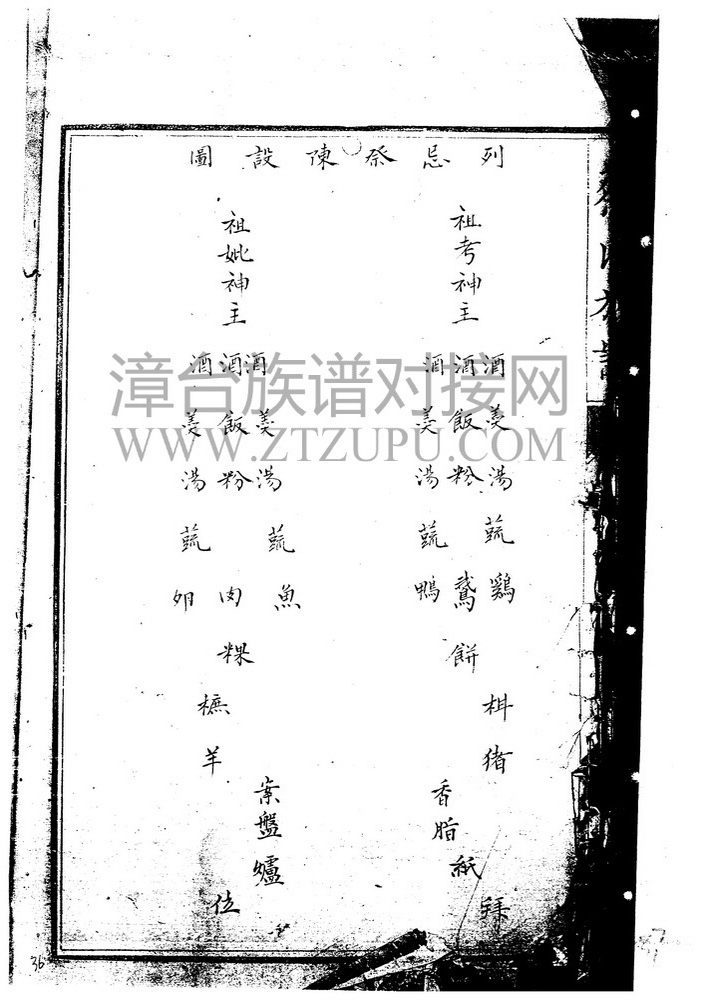 列忌祭陳設圖
祖考神主
祖妣神主
酒酒酒 酒酒酒
羹飯羹 羹飯羹
湯粉湯 湯粉湯
蔬蔬 蔬蔬
鷄鵞鴨 魚肉卵
餅 粿
柑 樜
猪 羊
香脂紙 案盤爐
拜 位
漳台族谱对接网
WWW.ZTZUPU.COM
36